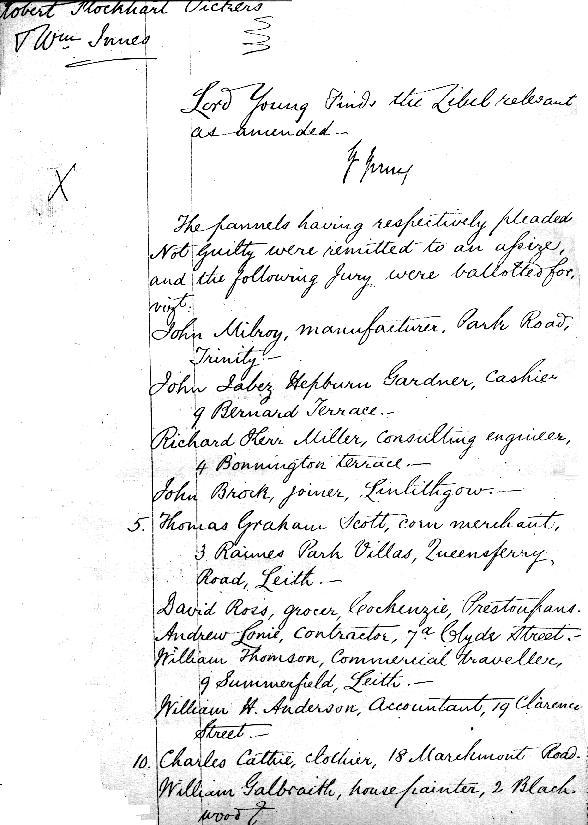 Robert Flockhart Vickers
& Wm Innes
Lord Young Finds the Libel relevant
as amended —
X
The pannels having respectively pleaded
Not Guilty were remitted to an assize,
and the following Jury were ballotted for,
vizt.
John Milroy, manufacturer, Park Road,
Trinity —
John Jabez Hepburn Gardner, Cashier
9 Bernard Terrace. —
Richard Kerr Miller, consulting engineer,
4 Bonnington terrace —
John Brock, joiner, Linlithgow. —
5. Thomas Graham Scott, corn merchant,
3 Raimes Park Villas, Queensferry
Road, Leith. —
David Ross, grocer, Cockenzie, Prestonpans.
Andrew Lonie, contractor, 7a Clyde Street. —
William Thomson, Commercial traveller,
9 Summerfield, Leith. —
William H. Anderson, Accountant, 19 Clarence
Street. —
10. Charles Cathie, clothier, 18 Marchmont Road.
William Galbraith, house painter, 2 Black-
wood